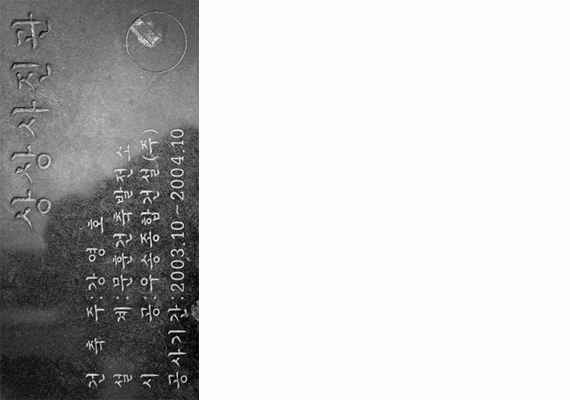 상상사진관
건 축 주:강 영 호
설 계:문훈건축발전소
시 공:우승종합건설(주)
공사기간:2003.10~2004.10